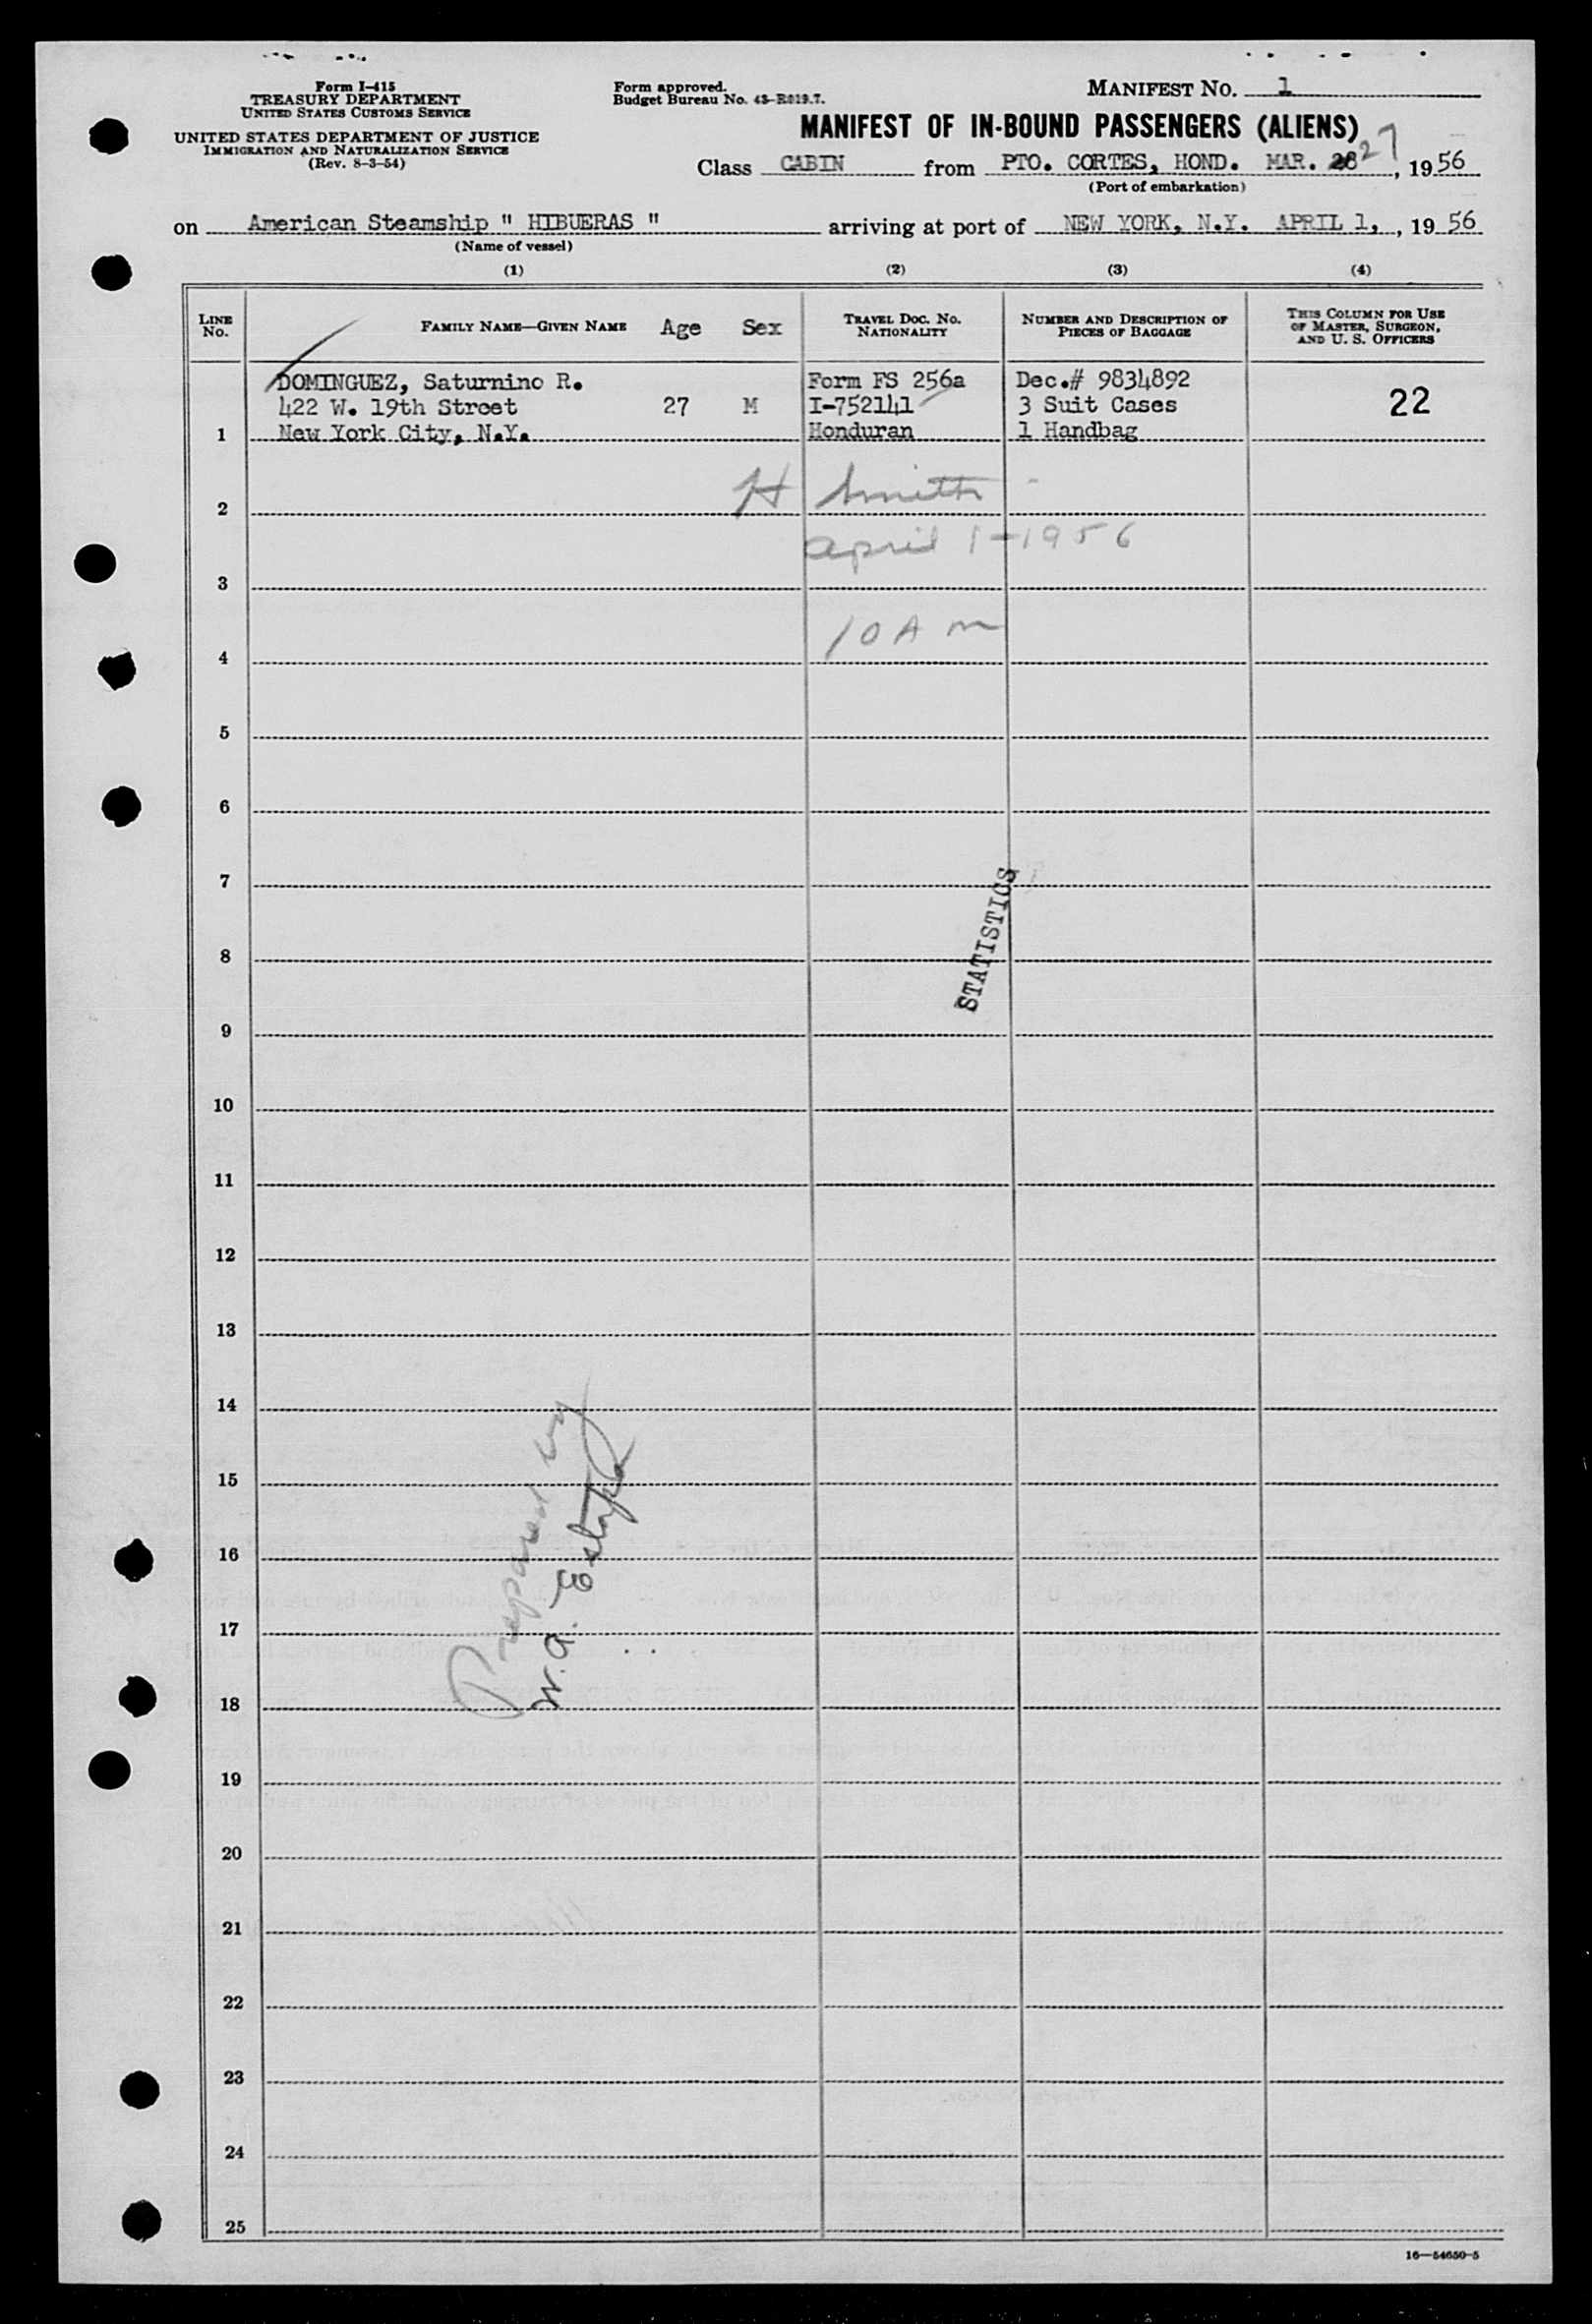 Form I-415
TREASURY DEPARTMENT
UNITED STATES CUSTOMS SERVICE
UNITED STATES DEPARTMENT OF JUSTICE
IMMIGRATION AND NATURALIZATION SERVICE
(Rev. 8-3-54)
Form approved.
Budget Bureau No. 43-R019.7.
MANIFEST No. 1
MANIFEST OF IN-BOUND PASSENGERS (ALIENS)
Class CABIN from PTO. CORTES, HOND. MAR. 27, 1956
(Port of embarkation)
on American Steamship " HIBUERAS " arriving at port of NEW YORK, N.Y. APRIL 1, , 1956
(Name of vessel)
(1) (2) (3) (4)
LINE No. FAMILY NAME—GIVEN NAME Age Sex TRAVEL DOC. No. NATIONALITY NUMBER AND DESCRIPTION OF PIECES OF BAGGAGE THIS COLUMN FOR USE OF MASTER, SURGEON, AND U. S. OFFICERS
DOMINGUEZ, Saturnino R. Form FS 256a Dec.# 9834892
422 W. 19th Street 27 M I-752141 3 Suit Cases 22
1 New York City, N.Y. Honduran 1 Handbag
2 H Smith
april 1-1956
3
10 A m
4
5
6
7
STATISTICS
8
9
10
11
12
13
14
Prepared by
W.A.
15
16
17
18
19
20
21
22
23
24
25
16—54650-5